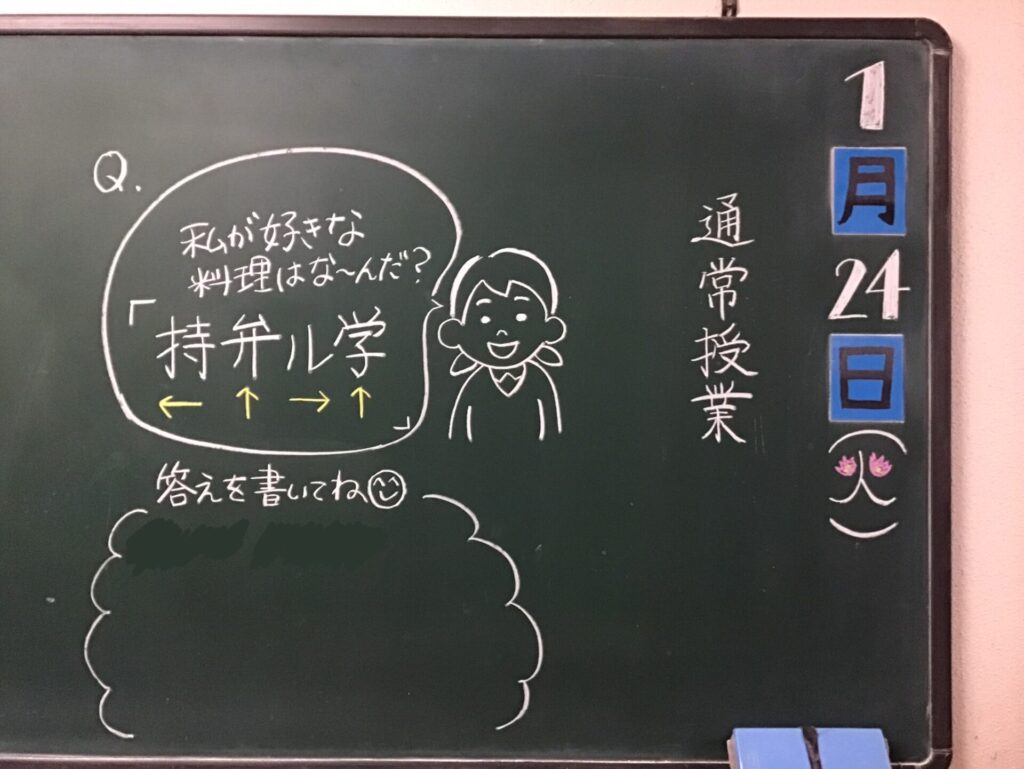 1月24日(火)
通常授業
Q.
私が好きな
料理はな〜んだ?
「持弁ル学
← ↑ → ↑」
答えを書いてね